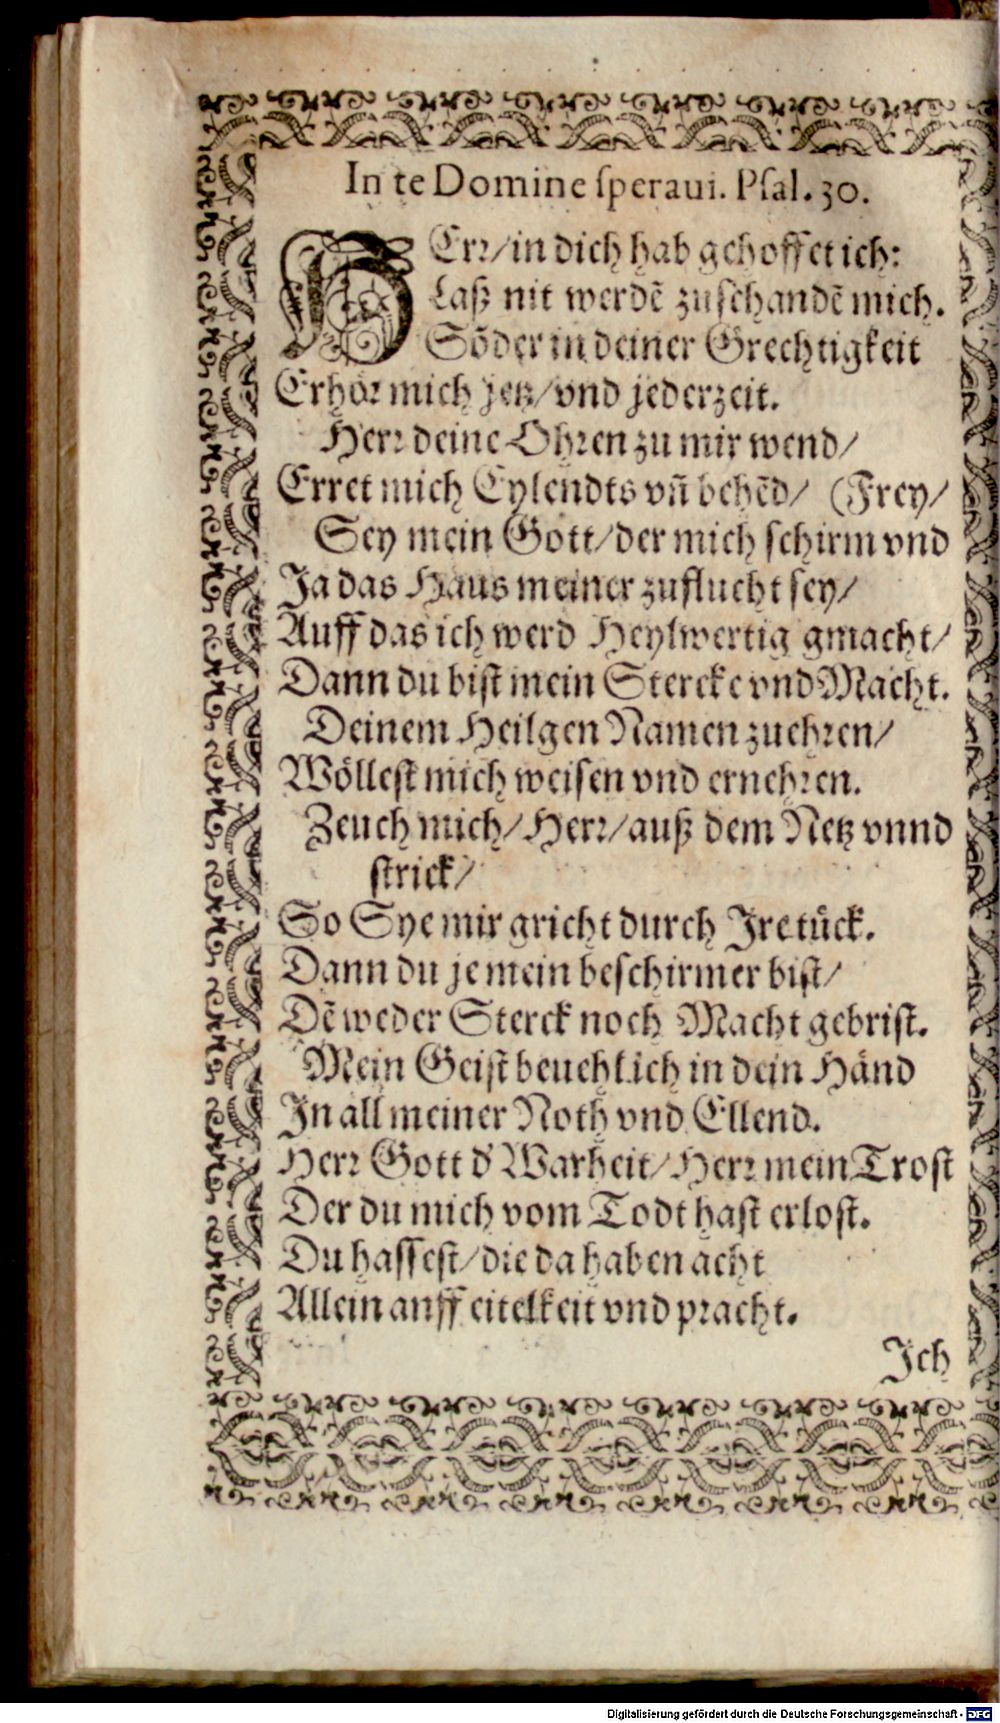 In te Domine speraui. Psal. 30.
HErr/in dich hab gehoffet ich:
Laß nit werdē zuschandē mich.
Sōder in deiner Grechtigkeit
Erhör mich jetz/vnd jederzeit.
Herr deine Ohren zu mir wend/
Erret mich Eylendts vñ behēd/ (Frey/
Sey mein Gott/der mich schirm vnd
Ja das Haus meiner zuflucht sey/
Auff das ich werd Heylwertig gmacht/
Dann du bist mein Stercke vnd Macht.
Deinem Heilgen Namen zuehren/
Wöllest mich weisen vnd ernehren.
Zeuch mich/Herr/auß dem Netz vnnd
strick/
So Sye mir gricht durch Jre tück.
Dann du je mein beschirmer bist/
Dē weder Sterck noch Macht gebrist.
Mein Geist beuehl ich in dein Händ
In all meiner Noth vnd Ellend.
Herr Gott d' Warheit/Herr mein Trost
Der du mich vom Todt hast erlost.
Du hassest/die da haben acht
Allein anff eitelkeit vnd pracht.
Ich
Digitalisierung gefördert durch die Deutsche Forschungsgemeinschaft - DFG